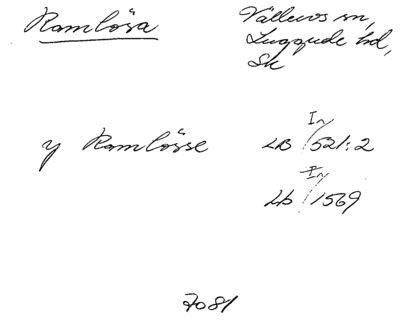 Ramlösa
Välluvs sn,
Luggude hd,
Sk
y Ramlösse
In
LB 521:2
In
Lb 1569
7081